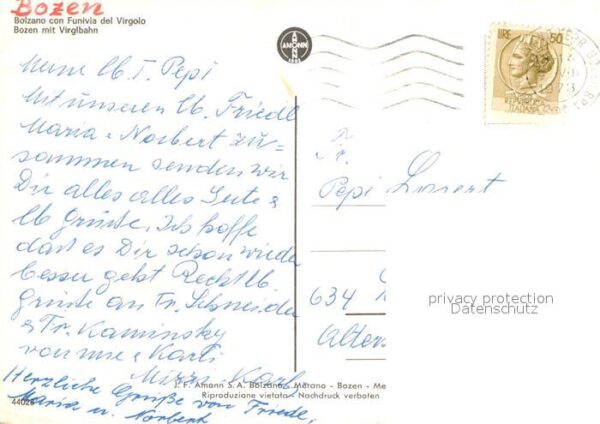 Bozen
Bolzano con Funivia del Virgolo
Bozen mit Virglbahn
AMONN
LIRE 50
REPUBBLICA
ITALIANA
Meine lb. T. Pepi
Mit unseren lb. Friedl
Maria & Norbert zu=
sammen senden wir
Dir alles alles Gute &
lb Grüße. Ich hoffe
dass es Dir schon wieder
besser geht Recht lb.
Grüße an Fr. Schneider
& Fr. Kaminsky
von mir & Karli
Mizzi Karl
Herzliche Grüße von Friedl,
Maria u. Norbert
Fr.
Pepi
634
Alters
privacy protection
Datenschutz
J. F. Amann S.A. Bolzano - Merano - Bozen - Me
Riproduzione vietata - Nachdruck verboten
44028